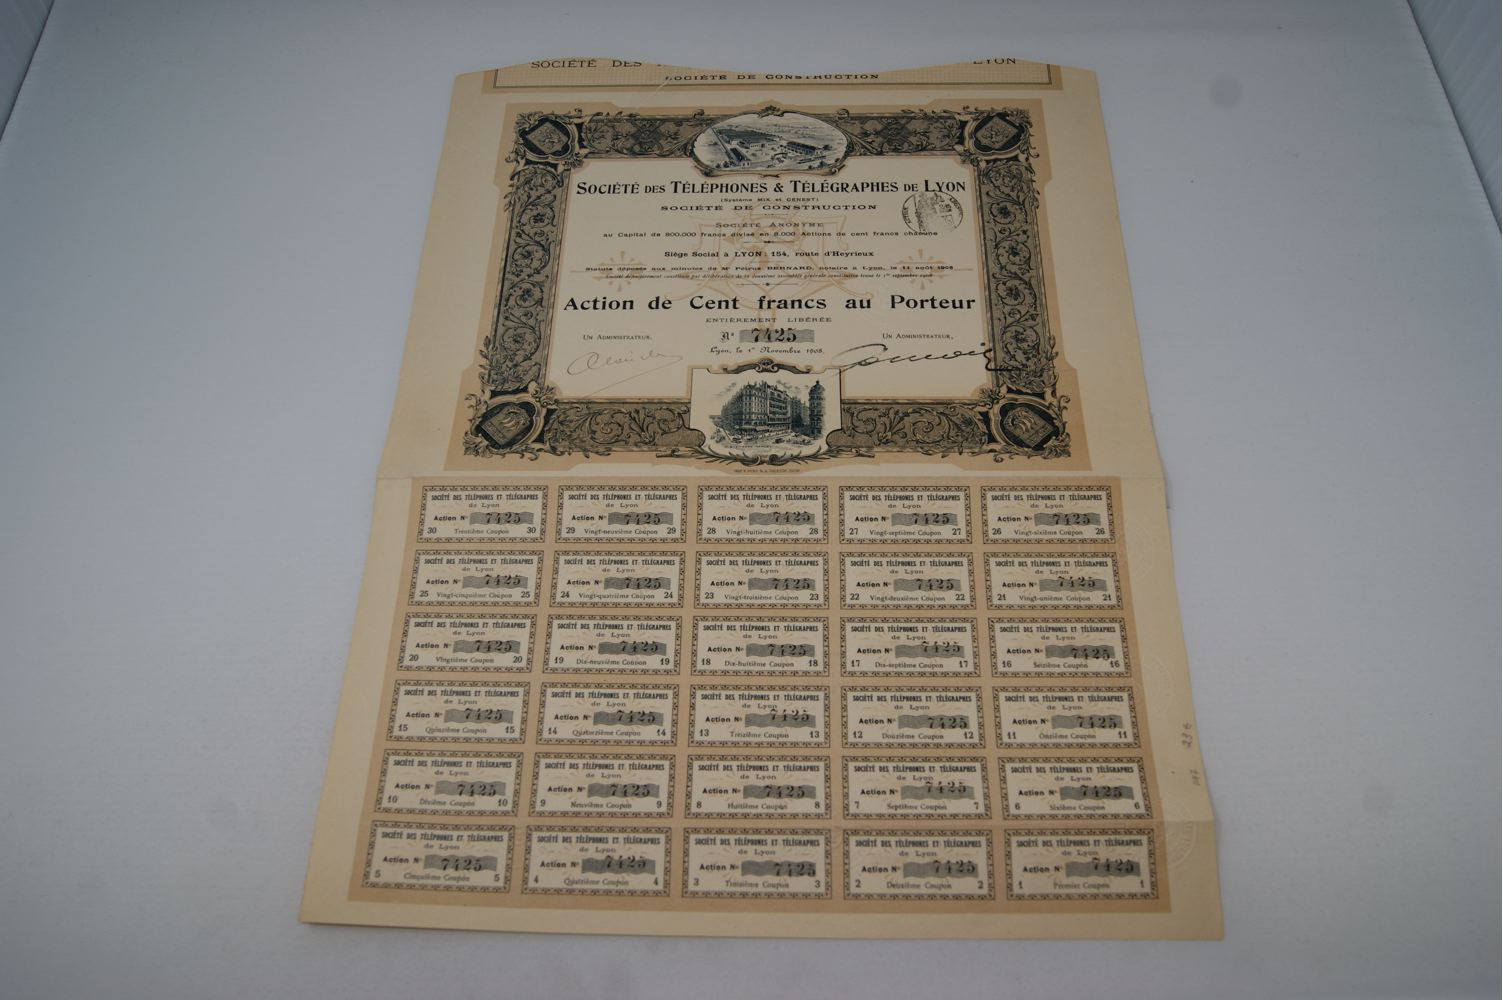 SOCIÉTÉ DES LYON
SOCIÉTÉ DE CONSTRUCTION
SOCIÉTÉ DES TÉLÉPHONES & TÉLÉGRAPHES DE LYON
(Système MIX et GENEST)
SOCIÉTÉ DE CONSTRUCTION
SOCIÉTÉ ANONYME
au Capital de 800.000 francs divisé en 8.000 Actions de cent francs chacune
Siège Social à LYON: 154, route d'Heyrieux
Statuts déposés aux minutes de Me Pétrus BERNARD, notaire à Lyon, le 11 août 1908
Société définitivement constituée par délibération de la deuxième assemblée générale constitutive tenue le 1er septembre 1908
Action de Cent francs au Porteur
ENTIÈREMENT LIBÉRÉE
UN ADMINISTRATEUR, No 7425 UN ADMINISTRATEUR,
Lyon, le 1er Novembre 1908,
SOCIÉTÉ DES TÉLÉPHONES ET TÉLÉGRAPHES
de Lyon
Action No 7425
30 Trentième Coupon 30
SOCIÉTÉ DES TÉLÉPHONES ET TÉLÉGRAPHES
de Lyon
Action No 7425
29 Vingt-neuvième Coupon 29
SOCIÉTÉ DES TÉLÉPHONES ET TÉLÉGRAPHES
de Lyon
Action No 7425
28 Vingt-huitième Coupon 28
SOCIÉTÉ DES TÉLÉPHONES ET TÉLÉGRAPHES
de Lyon
Action No 7425
27 Vingt-septième Coupon 27
SOCIÉTÉ DES TÉLÉPHONES ET TÉLÉGRAPHES
de Lyon
Action No 7425
26 Vingt-sixième Coupon 26
SOCIÉTÉ DES TÉLÉPHONES ET TÉLÉGRAPHES
de Lyon
Action No 7425
25 Vingt-cinquième Coupon 25
SOCIÉTÉ DES TÉLÉPHONES ET TÉLÉGRAPHES
de Lyon
Action No 7425
24 Vingt-quatrième Coupon 24
SOCIÉTÉ DES TÉLÉPHONES ET TÉLÉGRAPHES
de Lyon
Action No 7425
23 Vingt-troisième Coupon 23
SOCIÉTÉ DES TÉLÉPHONES ET TÉLÉGRAPHES
de Lyon
Action No 7425
22 Vingt-deuxième Coupon 22
SOCIÉTÉ DES TÉLÉPHONES ET TÉLÉGRAPHES
de Lyon
Action No 7425
21 Vingt-unième Coupon 21
SOCIÉTÉ DES TÉLÉPHONES ET TÉLÉGRAPHES
de Lyon
Action No 7425
20 Vingtième Coupon 20
SOCIÉTÉ DES TÉLÉPHONES ET TÉLÉGRAPHES
de Lyon
Action No 7425
19 Dix-neuvième Coupon 19
SOCIÉTÉ DES TÉLÉPHONES ET TÉLÉGRAPHES
de Lyon
Action No 7425
18 Dix-huitième Coupon 18
SOCIÉTÉ DES TÉLÉPHONES ET TÉLÉGRAPHES
de Lyon
Action No 7425
17 Dix-septième Coupon 17
SOCIÉTÉ DES TÉLÉPHONES ET TÉLÉGRAPHES
de Lyon
Action No 7425
16 Seizième Coupon 16
SOCIÉTÉ DES TÉLÉPHONES ET TÉLÉGRAPHES
de Lyon
Action No 7425
15 Quinzième Coupon 15
SOCIÉTÉ DES TÉLÉPHONES ET TÉLÉGRAPHES
de Lyon
Action No 7425
14 Quatorzième Coupon 14
SOCIÉTÉ DES TÉLÉPHONES ET TÉLÉGRAPHES
de Lyon
Action No 7425
13 Treizième Coupon 13
SOCIÉTÉ DES TÉLÉPHONES ET TÉLÉGRAPHES
de Lyon
Action No 7425
12 Douzième Coupon 12
SOCIÉTÉ DES TÉLÉPHONES ET TÉLÉGRAPHES
de Lyon
Action No 7425
11 Onzième Coupon 11
SOCIÉTÉ DES TÉLÉPHONES ET TÉLÉGRAPHES
de Lyon
Action No 7425
10 Dixième Coupon 10
SOCIÉTÉ DES TÉLÉPHONES ET TÉLÉGRAPHES
de Lyon
Action No 7425
9 Neuvième Coupon 9
SOCIÉTÉ DES TÉLÉPHONES ET TÉLÉGRAPHES
de Lyon
Action No 7425
8 Huitième Coupon 8
SOCIÉTÉ DES TÉLÉPHONES ET TÉLÉGRAPHES
de Lyon
Action No 7425
7 Septième Coupon 7
SOCIÉTÉ DES TÉLÉPHONES ET TÉLÉGRAPHES
de Lyon
Action No 7425
6 Sixième Coupon 6
SOCIÉTÉ DES TÉLÉPHONES ET TÉLÉGRAPHES
de Lyon
Action No 7425
5 Cinquième Coupon 5
SOCIÉTÉ DES TÉLÉPHONES ET TÉLÉGRAPHES
de Lyon
Action No 7425
4 Quatrième Coupon 4
SOCIÉTÉ DES TÉLÉPHONES ET TÉLÉGRAPHES
de Lyon
Action No 7425
3 Troisième Coupon 3
SOCIÉTÉ DES TÉLÉPHONES ET TÉLÉGRAPHES
de Lyon
Action No 7425
2 Deuxième Coupon 2
SOCIÉTÉ DES TÉLÉPHONES ET TÉLÉGRAPHES
de Lyon
Action No 7425
1 Premier Coupon 1